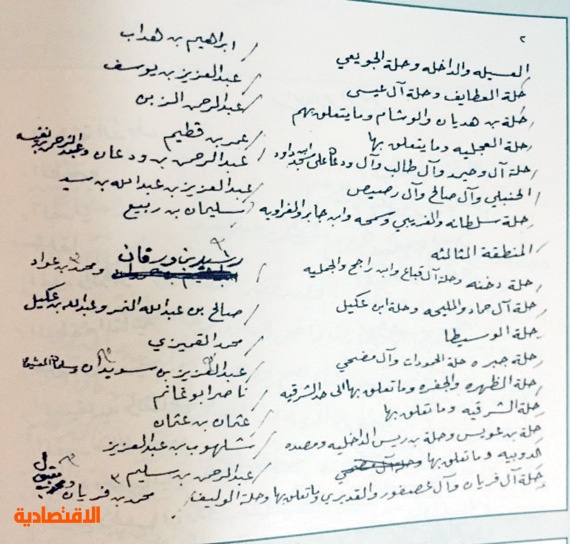 ٢
العسيله والداخله وحلة الجويعي / ابراهيم بن هداب
حلة العطايف وحلة آل عيسى / عبدالعزيز بن يوسف
حلة بن هديان والوشام وما يتعلق بهم / عبدالرحمن المزين
حلة العجليه وما يتعلق بها / عمر بن قطيم
حلة آل وحيمد وآل طالب وآل ودعان على مسجد ابن داود / عبدالرحمن بن ودعان وعبدالرحمن بن نفيسه
الحنبلي وآل صالح وآل رصيص / عبدالعزيز بن عبدالله بن سيد
حلة سلطانه والغريبي وسمحه وابن جابر والغراويه / سليمان بن ربيع
المنطقة الثالثه
حلة دخنه وحلة آل قباع وابن راجح والجمليه / رشيد بن ورقان ومحمد بن عواد
حلة آل حماد والمليحه وحلة ابن عكيل / صالح بن عبدالله النمر وعبدالله بن عكيل
حلة الوسيطا / محمد القميزي
حلة جبره حلة الحمودات وآل مضحي / عبدالعزيز بن سويدان
حلة الظهره والجفره وما تعلق بها الى حد الشرقيه / ناصر ابو غانم
حلة الشرقيه وما تعلق بها / عثمان بن عثمان
حلة بن عويس وحلة بن ريس الداخليه ومصده / شلهوب بن عبدالعزيز
حدوبيه وما تعلق بها / عبدالرحمن بن سليم ٣
حلة آل فريان وآل عصفور والقديري وما تعلق بها وحلة الوليف / محمد بن فريان
الاقتصادية